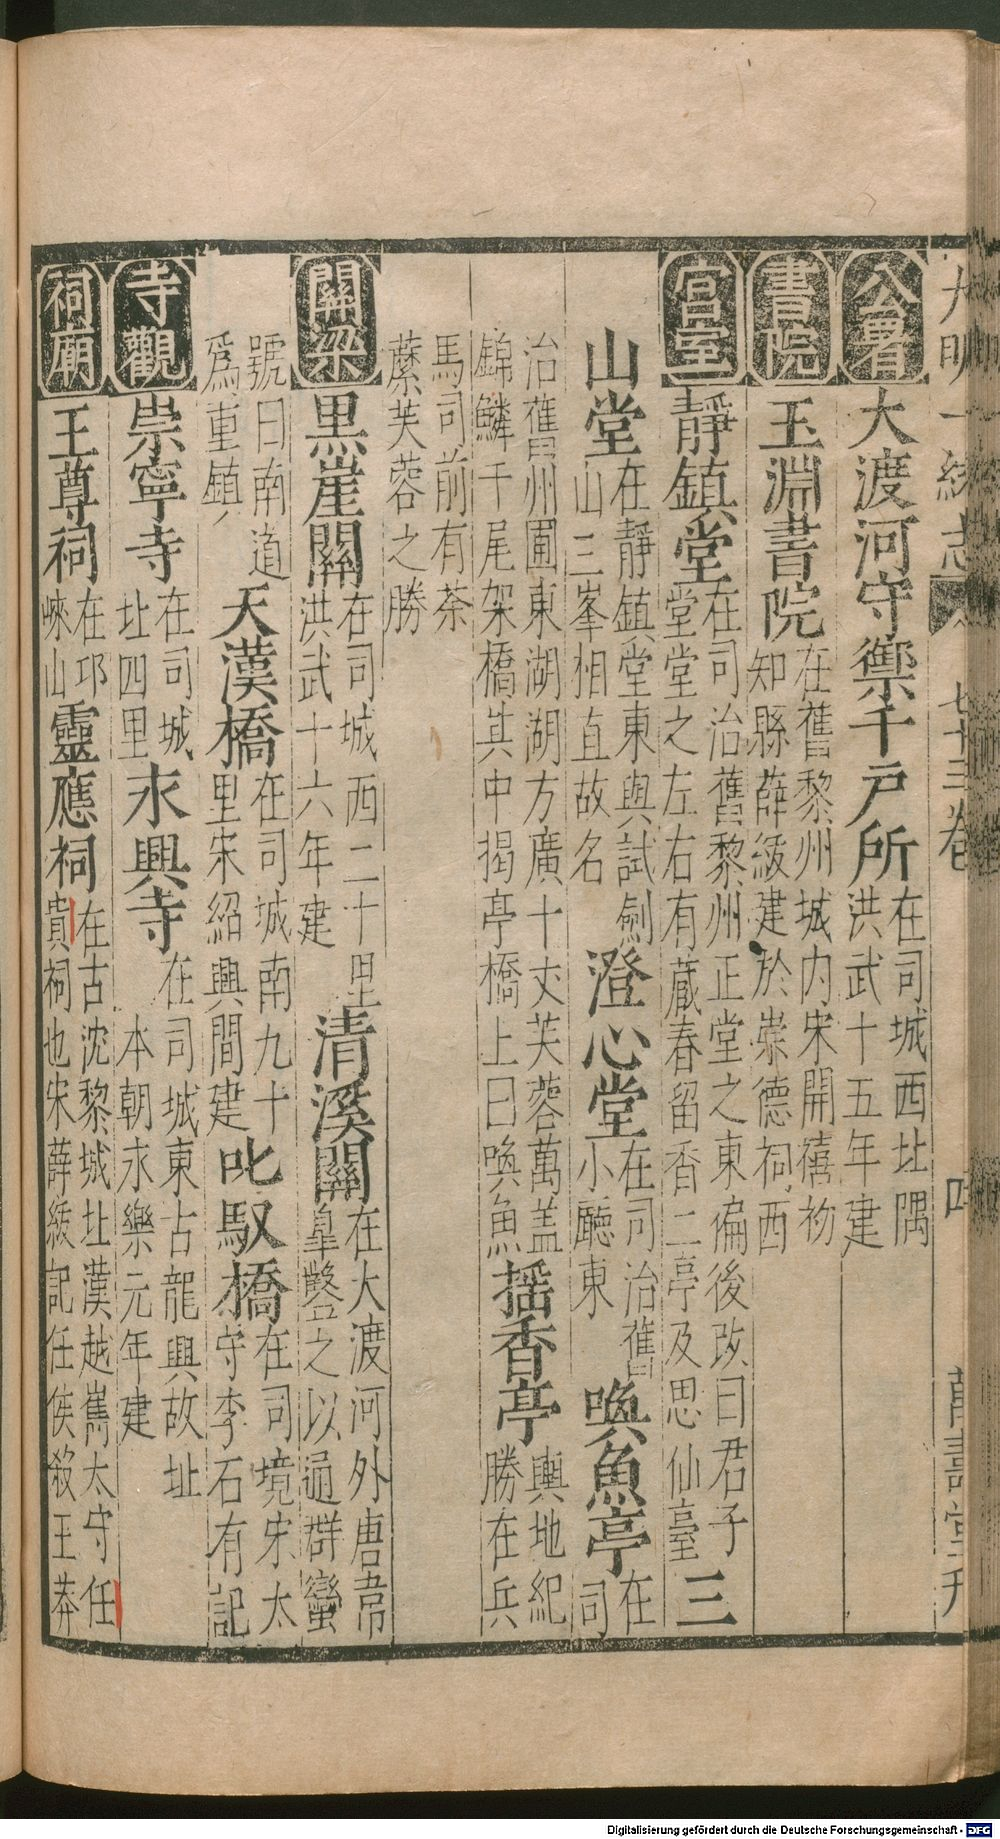 大明一統志 七十三卷 四 萬壽堂刋
公署 大渡河守禦千戶所 在司城西北隅
洪武十五年建
書院 玉淵書院 在舊黎州城内宋開禧初
知縣薛紱建於崇德祠西
宫室 靜鎮堂 在司治舊黎州正堂之東偏後改曰君子
堂堂之左右有藏春留香二亭及思仙臺 三
山堂 在靜鎮堂東與試劍
山三峯相直故名 澄心堂 在司治舊
小廳東 喚魚亭 在司
治舊州圃東湖湖方廣十丈芙蓉萬盖
錦鱗千尾架橋其中揭亭橋上曰喚魚 摇香亭 輿地紀
勝在兵
馬司前有荼
蘪芙蓉之勝
關梁 黑崖關 在司城西二十里
洪武十六年建 清溪關 在大渡河外唐韋
臯鑿之以通群蠻
號曰南道
爲重鎮 天漢橋 在司城南九十
里宋紹興間建 叱馭橋 在司境宋太
守李石有記
寺觀 崇寧寺 在司城
北四里 永興寺 在司城東占龍興故址
本朝永樂元年建
祠廟 王尊祠 在邛
崍山 靈應祠 在古沈黎城北漢越雋太守任
貴祠也宋薛紱記任侯殺王莽
Digitalisierung gefördert durch die Deutsche Forschungsgemeinschaft - DFG